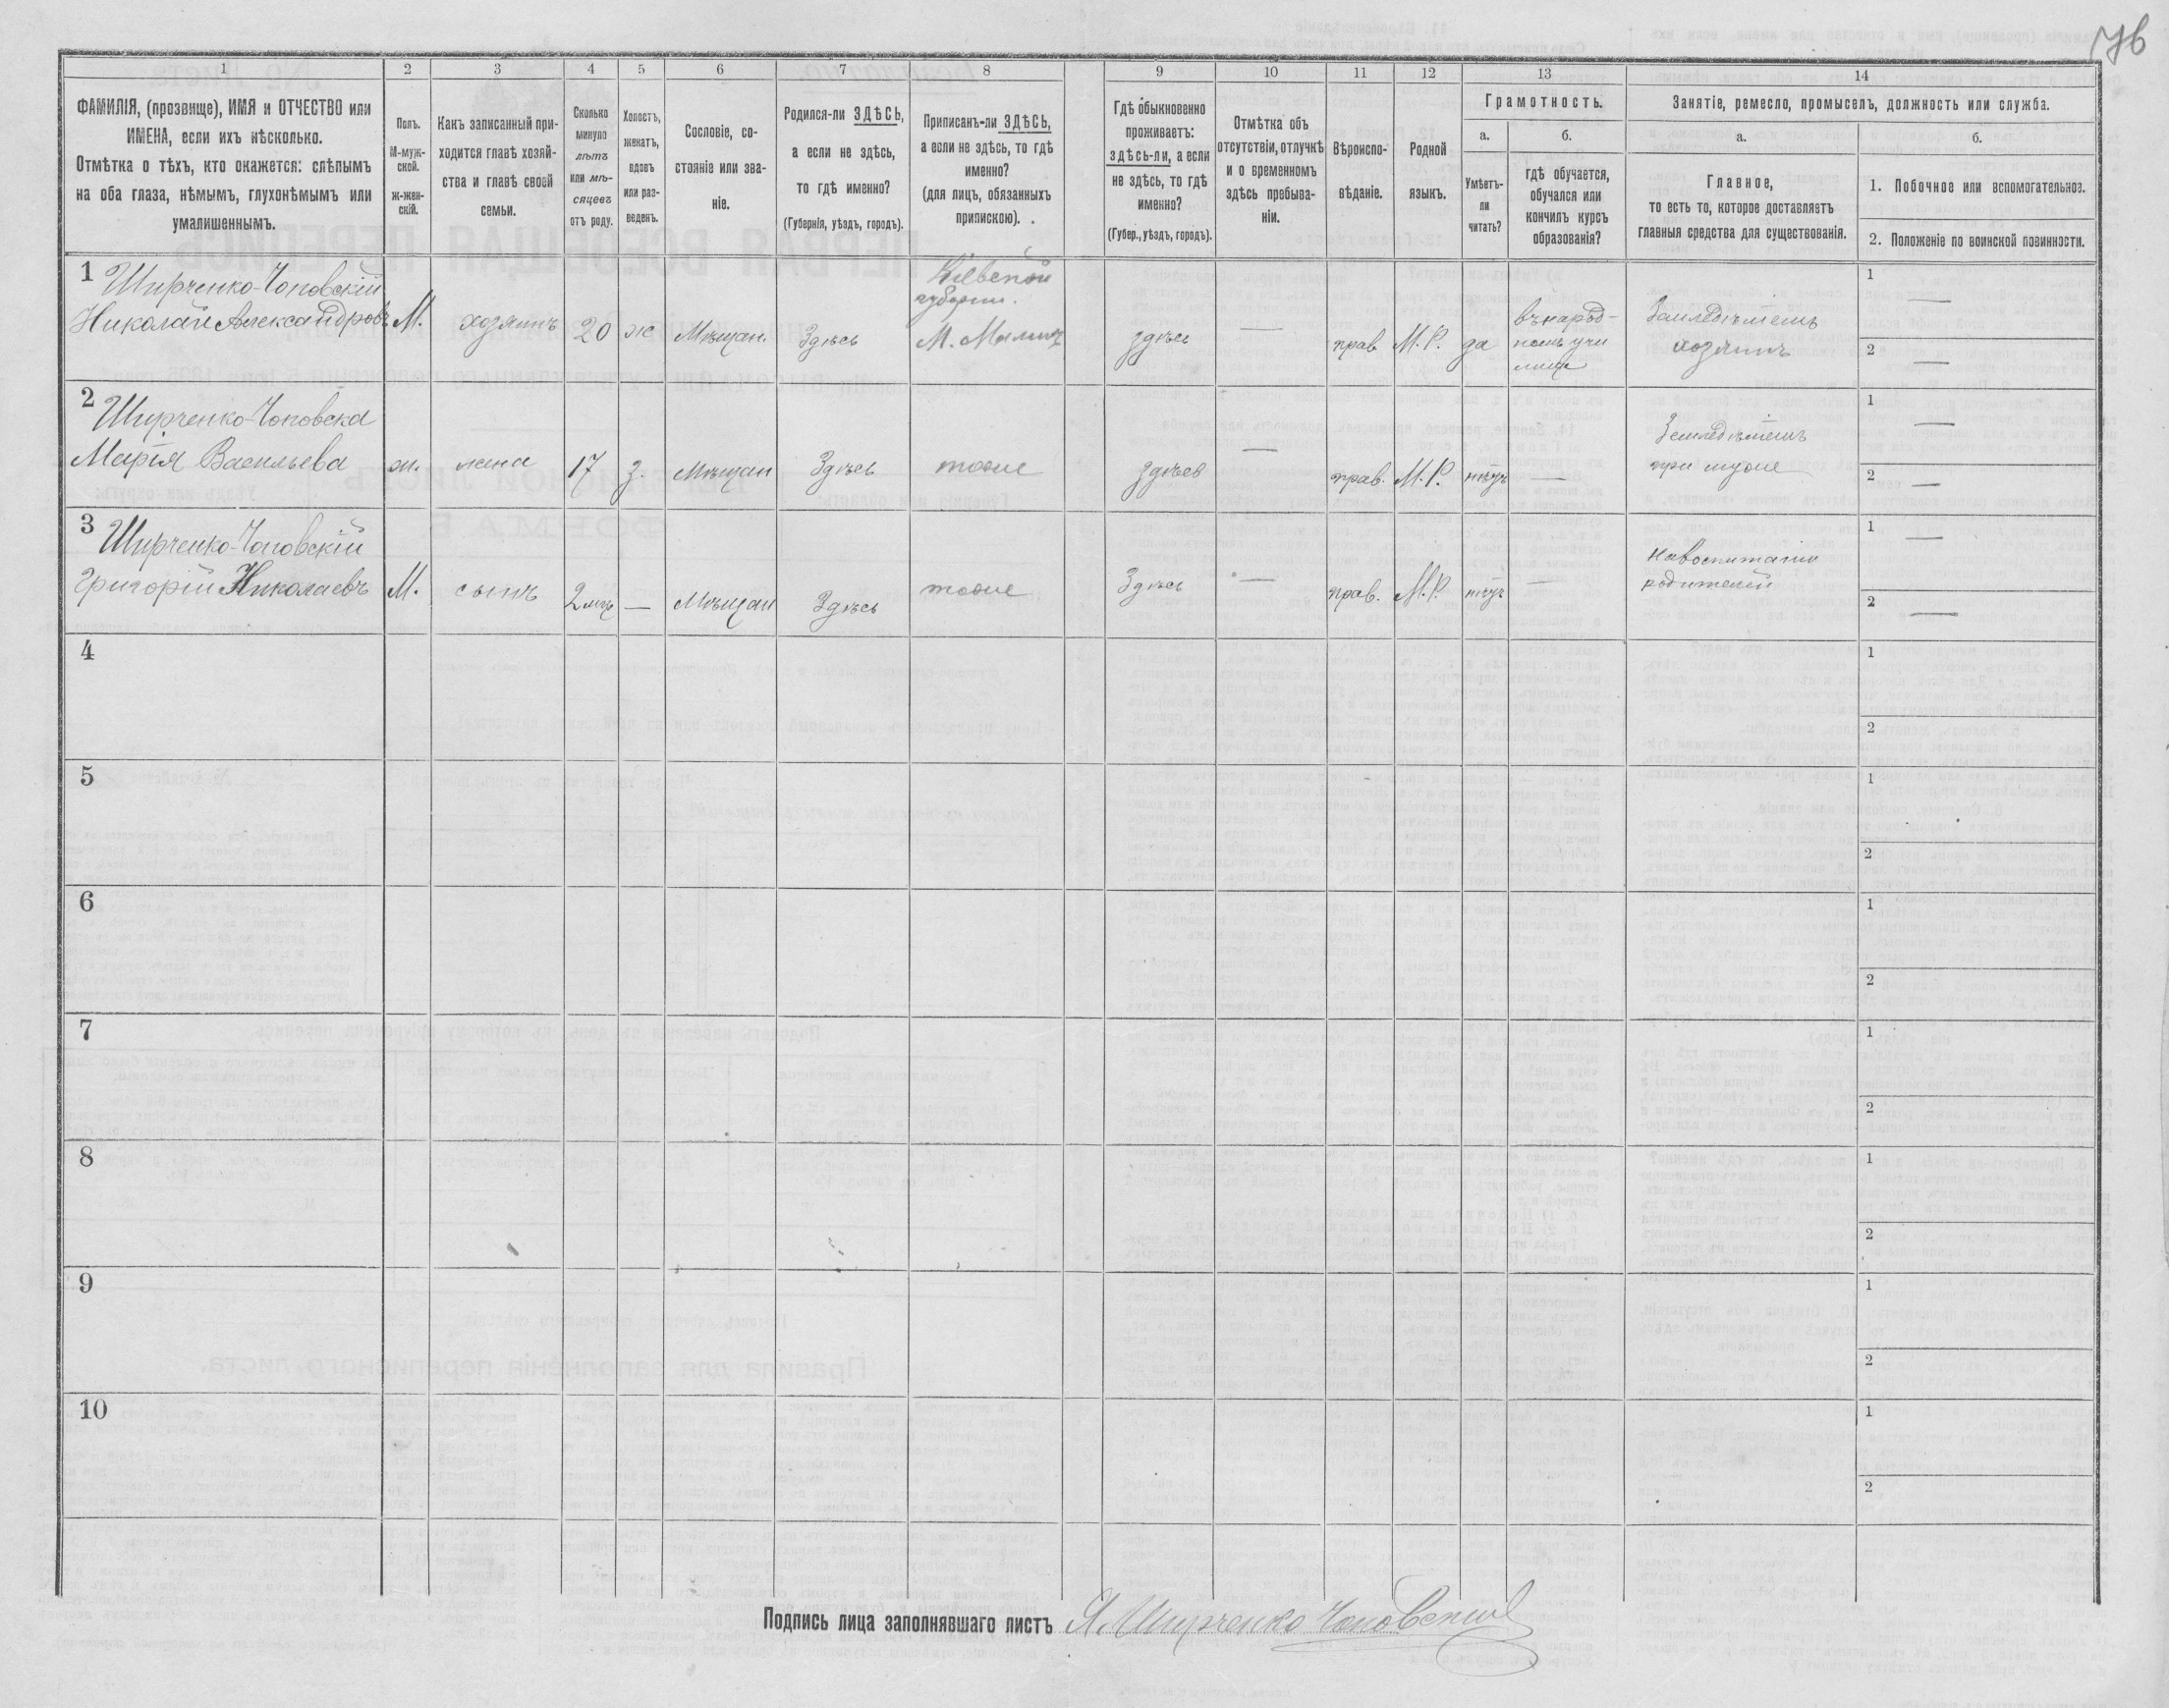 76
1 2 3 4 5 6 7 8 9 10 11 12 13 14
ФАМИЛІЯ, (прозвище), ИМЯ и ОТЧЕСТВО или
ИМЕНА, если ихъ нѣсколько.
Отмѣтка о тѣхъ, кто окажется: слѣпымъ
на оба глаза, нѣмымъ, глухонѣмымъ или
умалишеннымъ.
Полъ.
М-муж-
ской.
ж-жен-
скій.
Какъ записанный при-
ходится главѣ хозяй-
ства и главѣ своей
семьи.
Сколько
минуло
лѣтъ
или мѣ-
сяцевъ
отъ роду.
Холостъ,
женатъ,
вдовъ
или раз-
веденъ.
Сословіе, со-
стояніе или зва-
ніе.
Родился-ли ЗДѢСЬ,
а если не здѣсь,
то гдѣ именно?
(Губернія, уѣздъ, городъ).
Приписанъ-ли ЗДѢСЬ,
а если не здѣсь, то гдѣ
именно?
(для лицъ, обязанныхъ
припискою).
Гдѣ обыкновенно
проживаетъ:
здѣсь-ли, а если
не здѣсь, то гдѣ
именно?
(Губер., уѣздъ, городъ).
Отмѣтка объ
отсутствіи, отлучкѣ
и о временномъ
здѣсь пребыва-
ніи.
Вѣроиспо-
вѣданіе.
Родной
языкъ.
Грамотность.
а.
Умѣетъ-
ли
читать?
б.
гдѣ обучается,
обучался или
кончилъ курсъ
образованія?
Занятіе, ремесло, промыселъ, должность или служба.
а.
Главное,
то есть то, которое доставляетъ
главныя средства для существованія.
б.
1. Побочное или вспомогательное.
2. Положеніе по воинской повинности.
1
Ширченко-Чоповскій
Николай Александровъ
М.
хозяинъ
20
ж
Мѣщан.
Здѣсь
Кіевской
губерніи.
М. Малинъ
здѣсь
—
прав
М.Р.
да
въ народ-
номъ учи
лище
Землѣделіемъ
хозяинъ
1 —
2 —
2
Ширченко-Чоповска
Марія Васильева
ж.
жена
17
з.
мѣщан
Здѣсь
тоже
здѣсь
—
прав.
М.Р.
нѣтъ
—
Земледѣліемъ
при муже
1 —
2 —
3
Ширченко-Чоповскій
Григорій Николаевъ
М.
сынъ
2 мѣс
—
Мѣщан
Здѣсь
тоже
Здѣсь
—
прав.
М.Р.
нѣтъ
—
на воспитаніи
родителей
1 —
2 —
4
1
2
5
1
2
6
1
2
7
1
2
8
1
2
9
1
2
10
1
2
Подпись лица заполнявшаго листъ Я. Ширченко Чоповскій